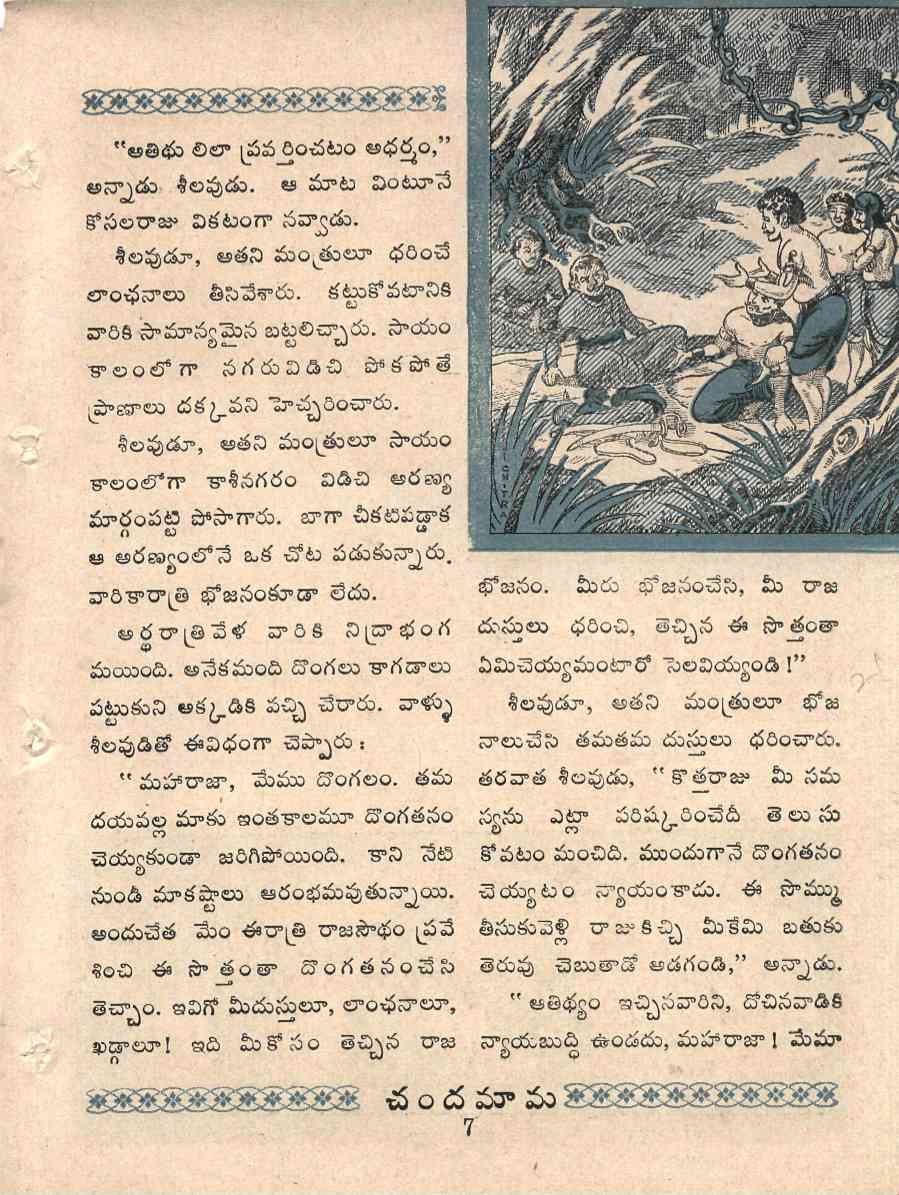 “అతిథు లిలా ప్రవర్తించటం అధర్మం,”
అన్నాడు శీలవుడు. ఆ మాట వింటూనే
కోసలరాజు వికటంగా నవ్వాడు.
శీలవుడూ, అతని మంత్రులూ ధరించే
లాంఛనాలు తీసివేశారు. కట్టుకోవటానికి
వారికి సామాన్యమైన బట్టలిచ్చారు. సాయం
కాలంలో గా నగరువిడిచి పోక పోతే
ప్రాణాలు దక్కవని హెచ్చరించారు.
శీలవుడూ, అతని మంత్రులూ సాయం
కాలంలోగా కాశీనగరం విడిచి అరణ్య
మార్గంపట్టి పోసాగారు. బాగా చీకటిపడ్డాక
ఆ అరణ్యంలోనే ఒక చోట పడుకున్నారు.
వారికారాత్రి భోజనంకూడా లేదు.
అర్థరాత్రివేళ వారికి నిద్రాభంగ
మయింది. అనేకమంది దొంగలు కాగడాలు
పట్టుకుని అక్కడికి వచ్చి చేరారు. వాళ్ళు
శీలవుడితో ఈవిధంగా చెప్పారు :
“ మహారాజా, మేము దొంగలం. తమ
దయవల్ల మాకు ఇంతకాలమూ దొంగతనం
చెయ్యకుండా జరిగిపోయింది. కాని నేటి
నుండీ మాకష్టాలు ఆరంభమవుతున్నాయి.
అందుచేత మేం ఈరాత్రి రాజసౌధం ప్రవే
శించి ఈ సొత్తంతా దొంగతనంచేసి
తెచ్చాం. ఇవిగో మీదుస్తులూ, లాంఛనాలూ,
ఖడ్గాలూ! ఇది మీకోసం తెచ్చిన రాజ
CHITRA
భోజనం. మీరు భోజనంచేసి, మీ రాజ
దుస్తులు ధరించి, తెచ్చిన ఈ సొత్తంతా
ఏమిచెయ్యమంటారో సెలవియ్యండి !”
శీలవుడూ, అతని మంత్రులూ భోజ
నాలుచేసి తమతమ దుస్తులు ధరించారు.
తరవాత శీలవుడు, “ కొత్తరాజు మీ సమ
స్యను ఎట్లా పరిష్కరించేదీ తెలుసు
కోవటం మంచిది. ముందుగానే దొంగతనం
చెయ్యటం న్యాయంకాదు. ఈ సొమ్ము
తీసుకువెళ్లి రాజుకిచ్చి మీకేమి బతుకు
తెరువు చెబుతాడో అడగండి,” అన్నాడు.
“ ఆతిథ్యం ఇచ్చినవారిని, దోచినవాడికి
న్యాయబుద్ధి ఉండదు, మహారాజా ! మేమా
చందమామ
7